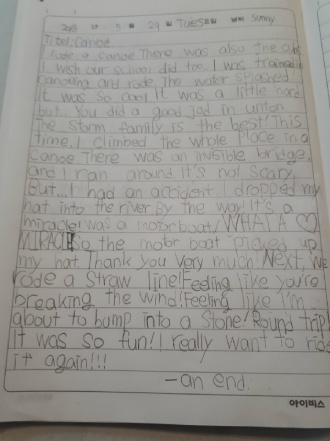 5 월 29 일 Tues요일 날씨 Sunny
Title: Canoe
I rode a canoe There was also the
I wish our school did too. I was trained in
Canoeing and rode. The water splashed
It was so cool It was a little hard
but... You did a good job in union
The storm family is the best! This
time. I climbed the whole place in a
Canoe There was an invisible bridge,
and I ran around It's not Scary,
But... I had an accident. I dropped my
hat into the river By the way! It's a
miracle! was a motor boat! WHAT A ♡
MIRACLE So the motor boat Picked up
my hat Thank you Very much! Next, we
rode a Straw line! Feeling like you're
breaking the wind! Feeling like I'm
about to bump into a Stone! Round trip!
It was so fun! I really want to ride
it again!!!
-an end.
아이비스